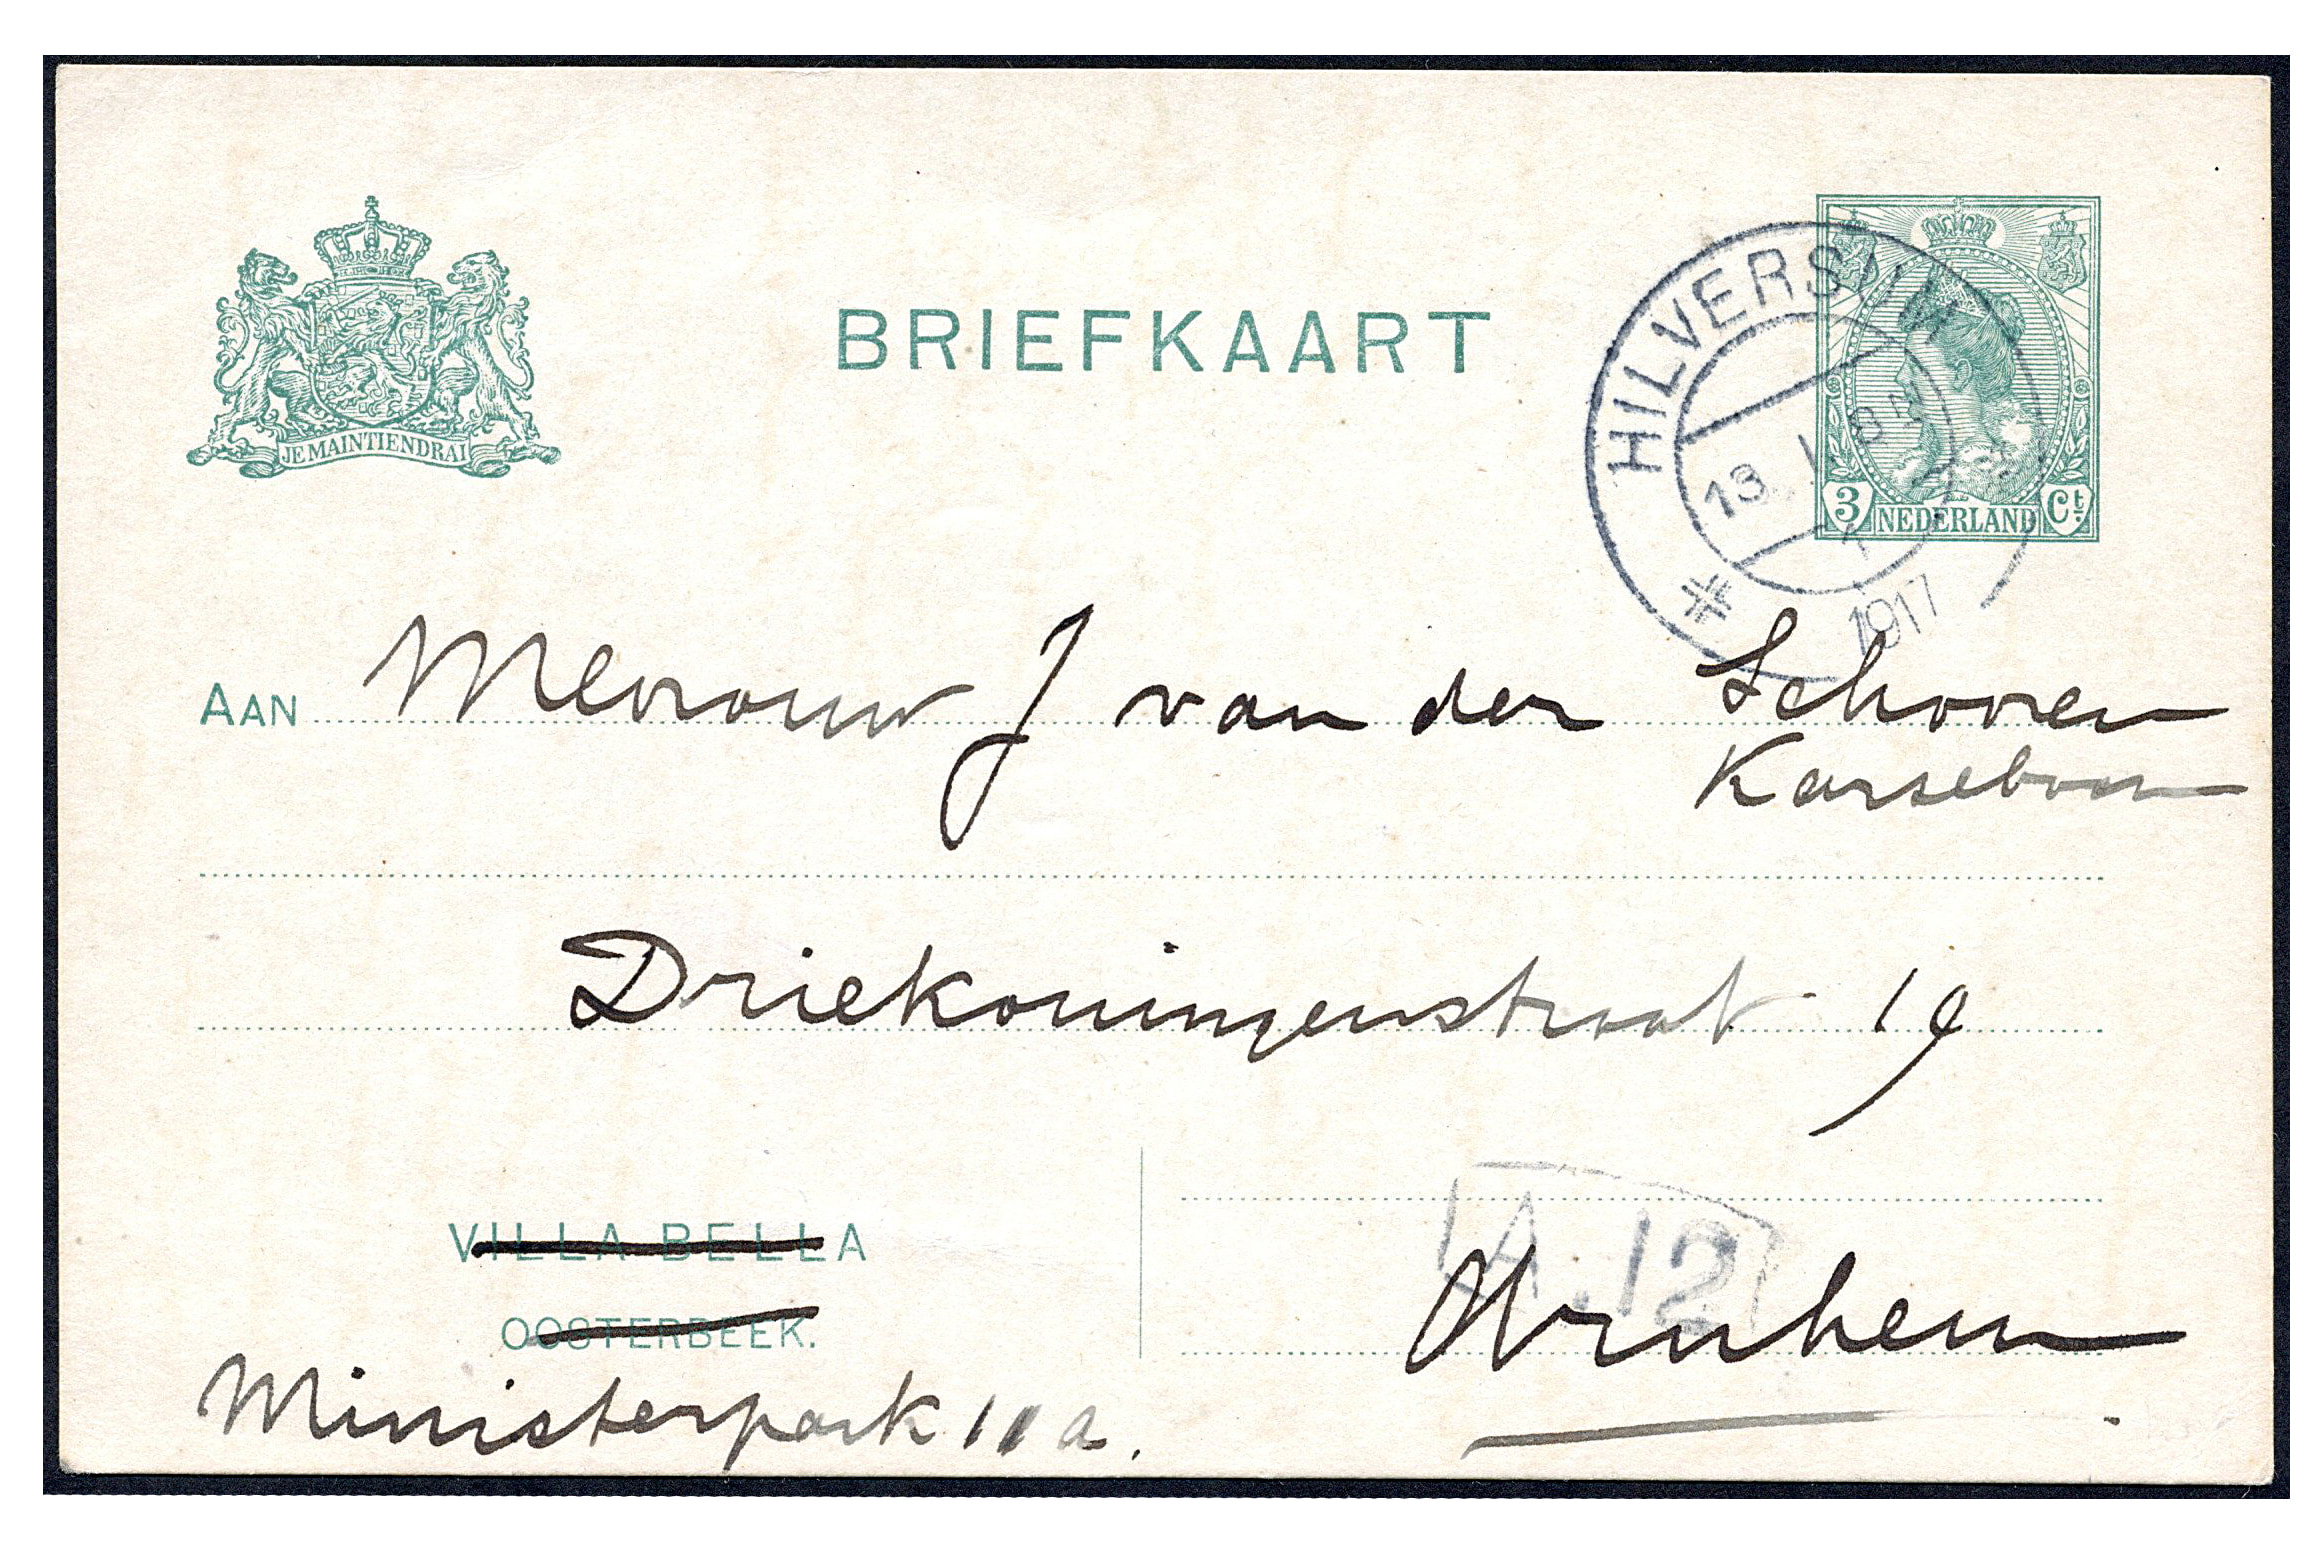 BRIEFKAART
JE MAINTIENDRAI
HILVERSUM
13. 1. 6
1917
3 NEDERLAND Ct
AAN Mevrouw J van der Schooren
Karseboom
Driekoningenstraat 19
VILLA BELLA
OOSTERBEEK.
Ministerpark 11a.
A.12
Arnhem